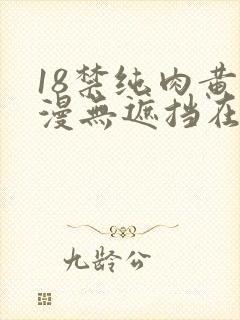 18禁纯肉黄
漫無遮挡在
九龄公